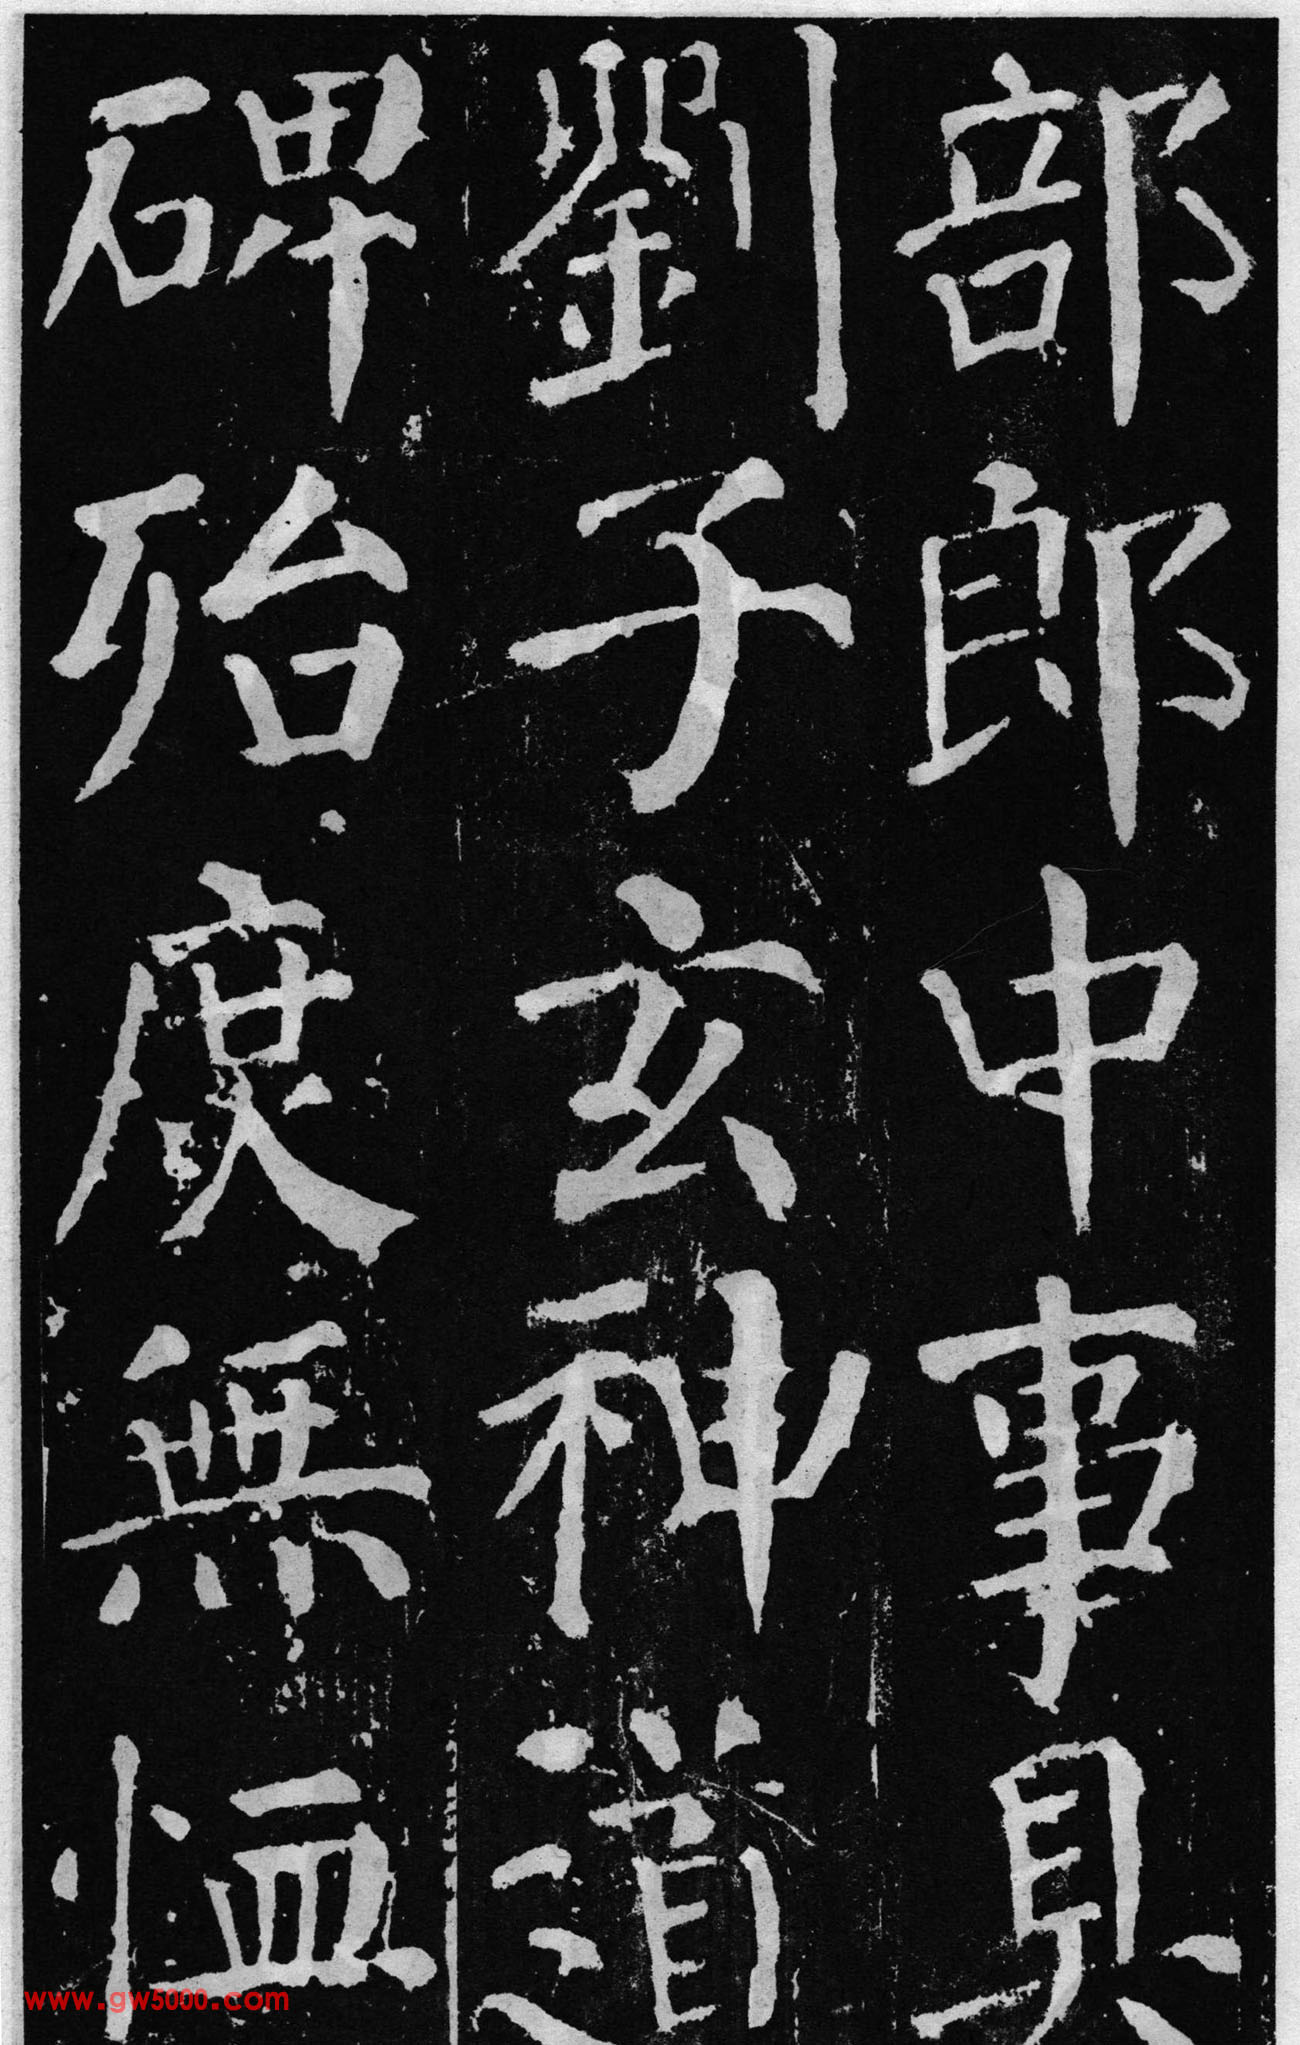 部郎中事具
劉子玄神道
碑殆庶無恤
www.gw5000.com